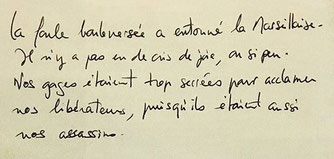 La foule bouleversée a entonné la Marseillaise.
Il n'y a pas eu de cris de joie, ou si peu.
Nos gorges étaient trop serrées pour acclamer
nos libérateurs, puisqu'ils étaient aussi
nos assassins.